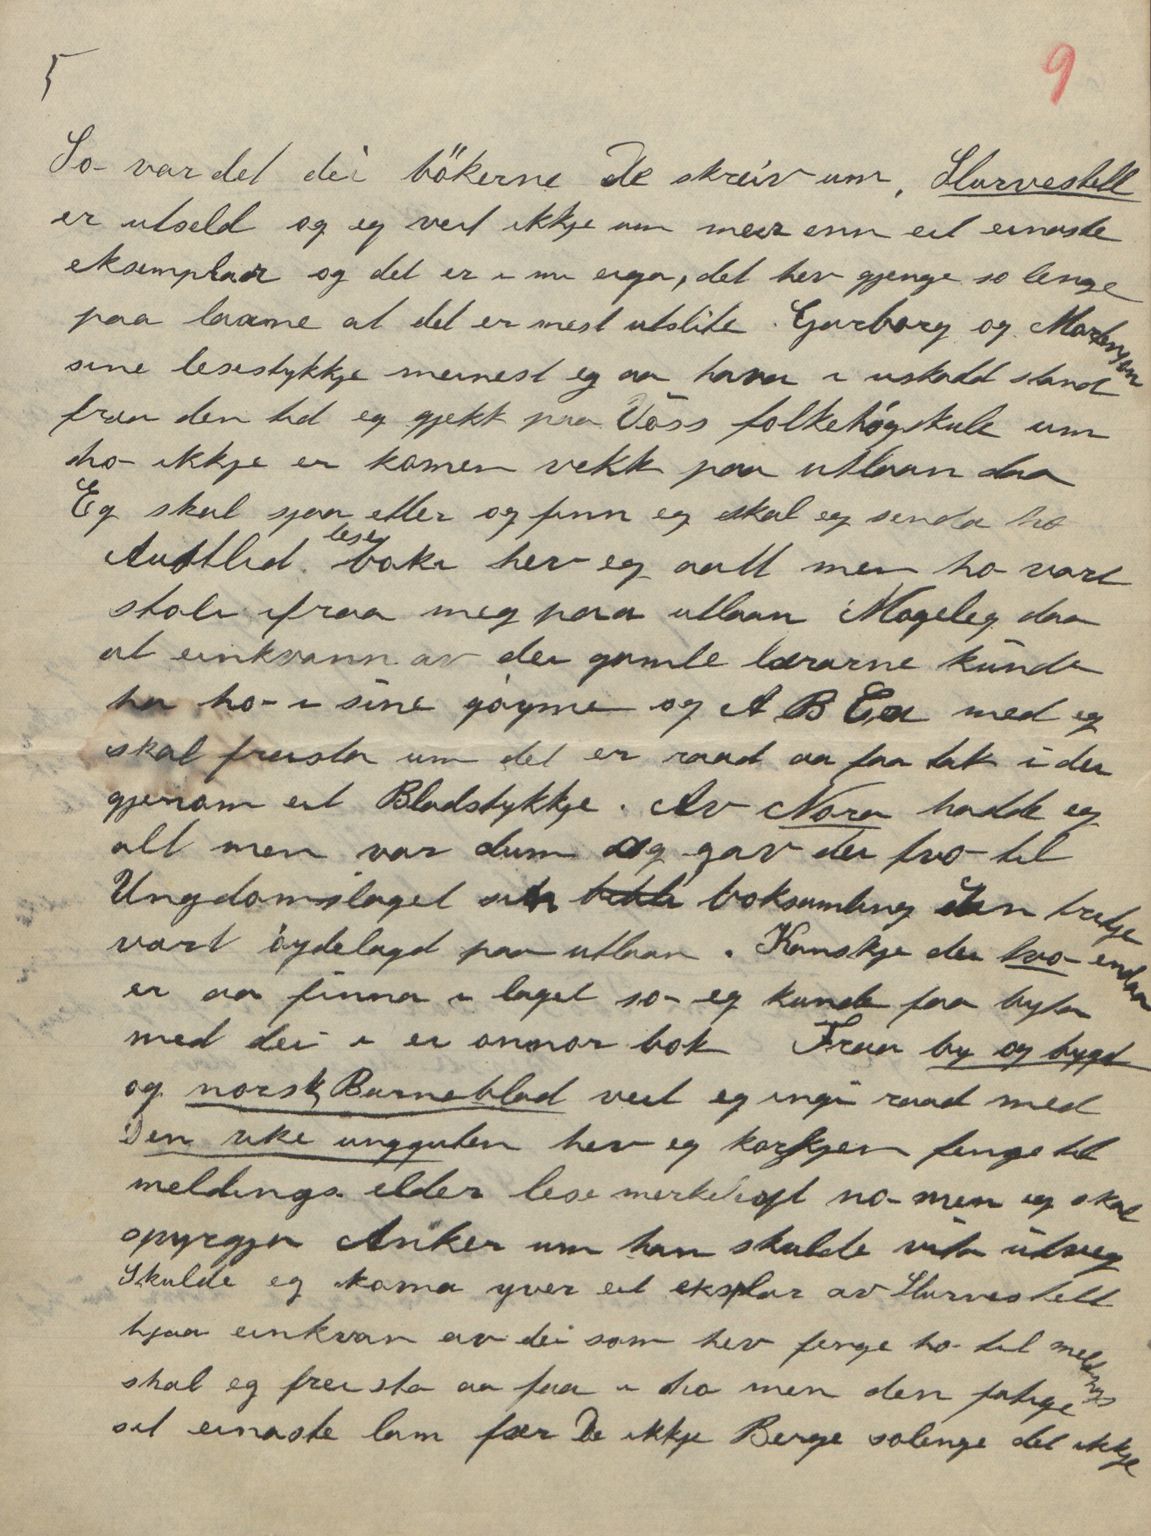 5
9
So- var det dei bökerne De skreiv um, Slurvestell
er utseld og eg veit ikkje um meir enn eit einaste
eksemplar og det er i mi eiga, det hev gjenge so lenge
paa laane at det er mest utslite. Garborg og Mortenson
sine lesestykkje meinest eg aa hava i uskadd stand
fraa den tid eg gjekk paa Vöss folkehögskule um
ho ikkje er komen vekk paa utlaan daa
Eg skal sjaa etter og finn eg skal eg senda ho
Austlid lese boki hev eg aatt men ho vart
stoli ifraa meg paa utlaan Mogeleg daa
at einkvann av dei gamle lærarne kunde
ha ho- i sine göyme og A B Ca med eg
skal freista um det er raad aa faa tak i dei
gjenom eit Bladstykkje. Av Nora hadde eg
alt men var dum og gav dei tvo til
Ungdomslaget si boksamling den tridje
vart öydelagd paa utlaan. Kanskje dei tvo- endaa
er aa finna i laget so- eg kunde faa byta
med dei i ei onnor bok Fraa by og bygd
og norsk Barneblad veit eg ingi raad med
Den rike ungguten hev eg korkjen fenge til
meldings elder lese merkeleigt no- men eg skal
spyrgja Anker um han skulde vita utveg
Skulde eg koma yver eit eksplar av Slurvestell
hjaa einkvan av dei som hev fenge ho- til meldings
skal eg freista aa faa i ho men den fatige
sit einaste lam fær De ikkje Berge solenge det ikkje